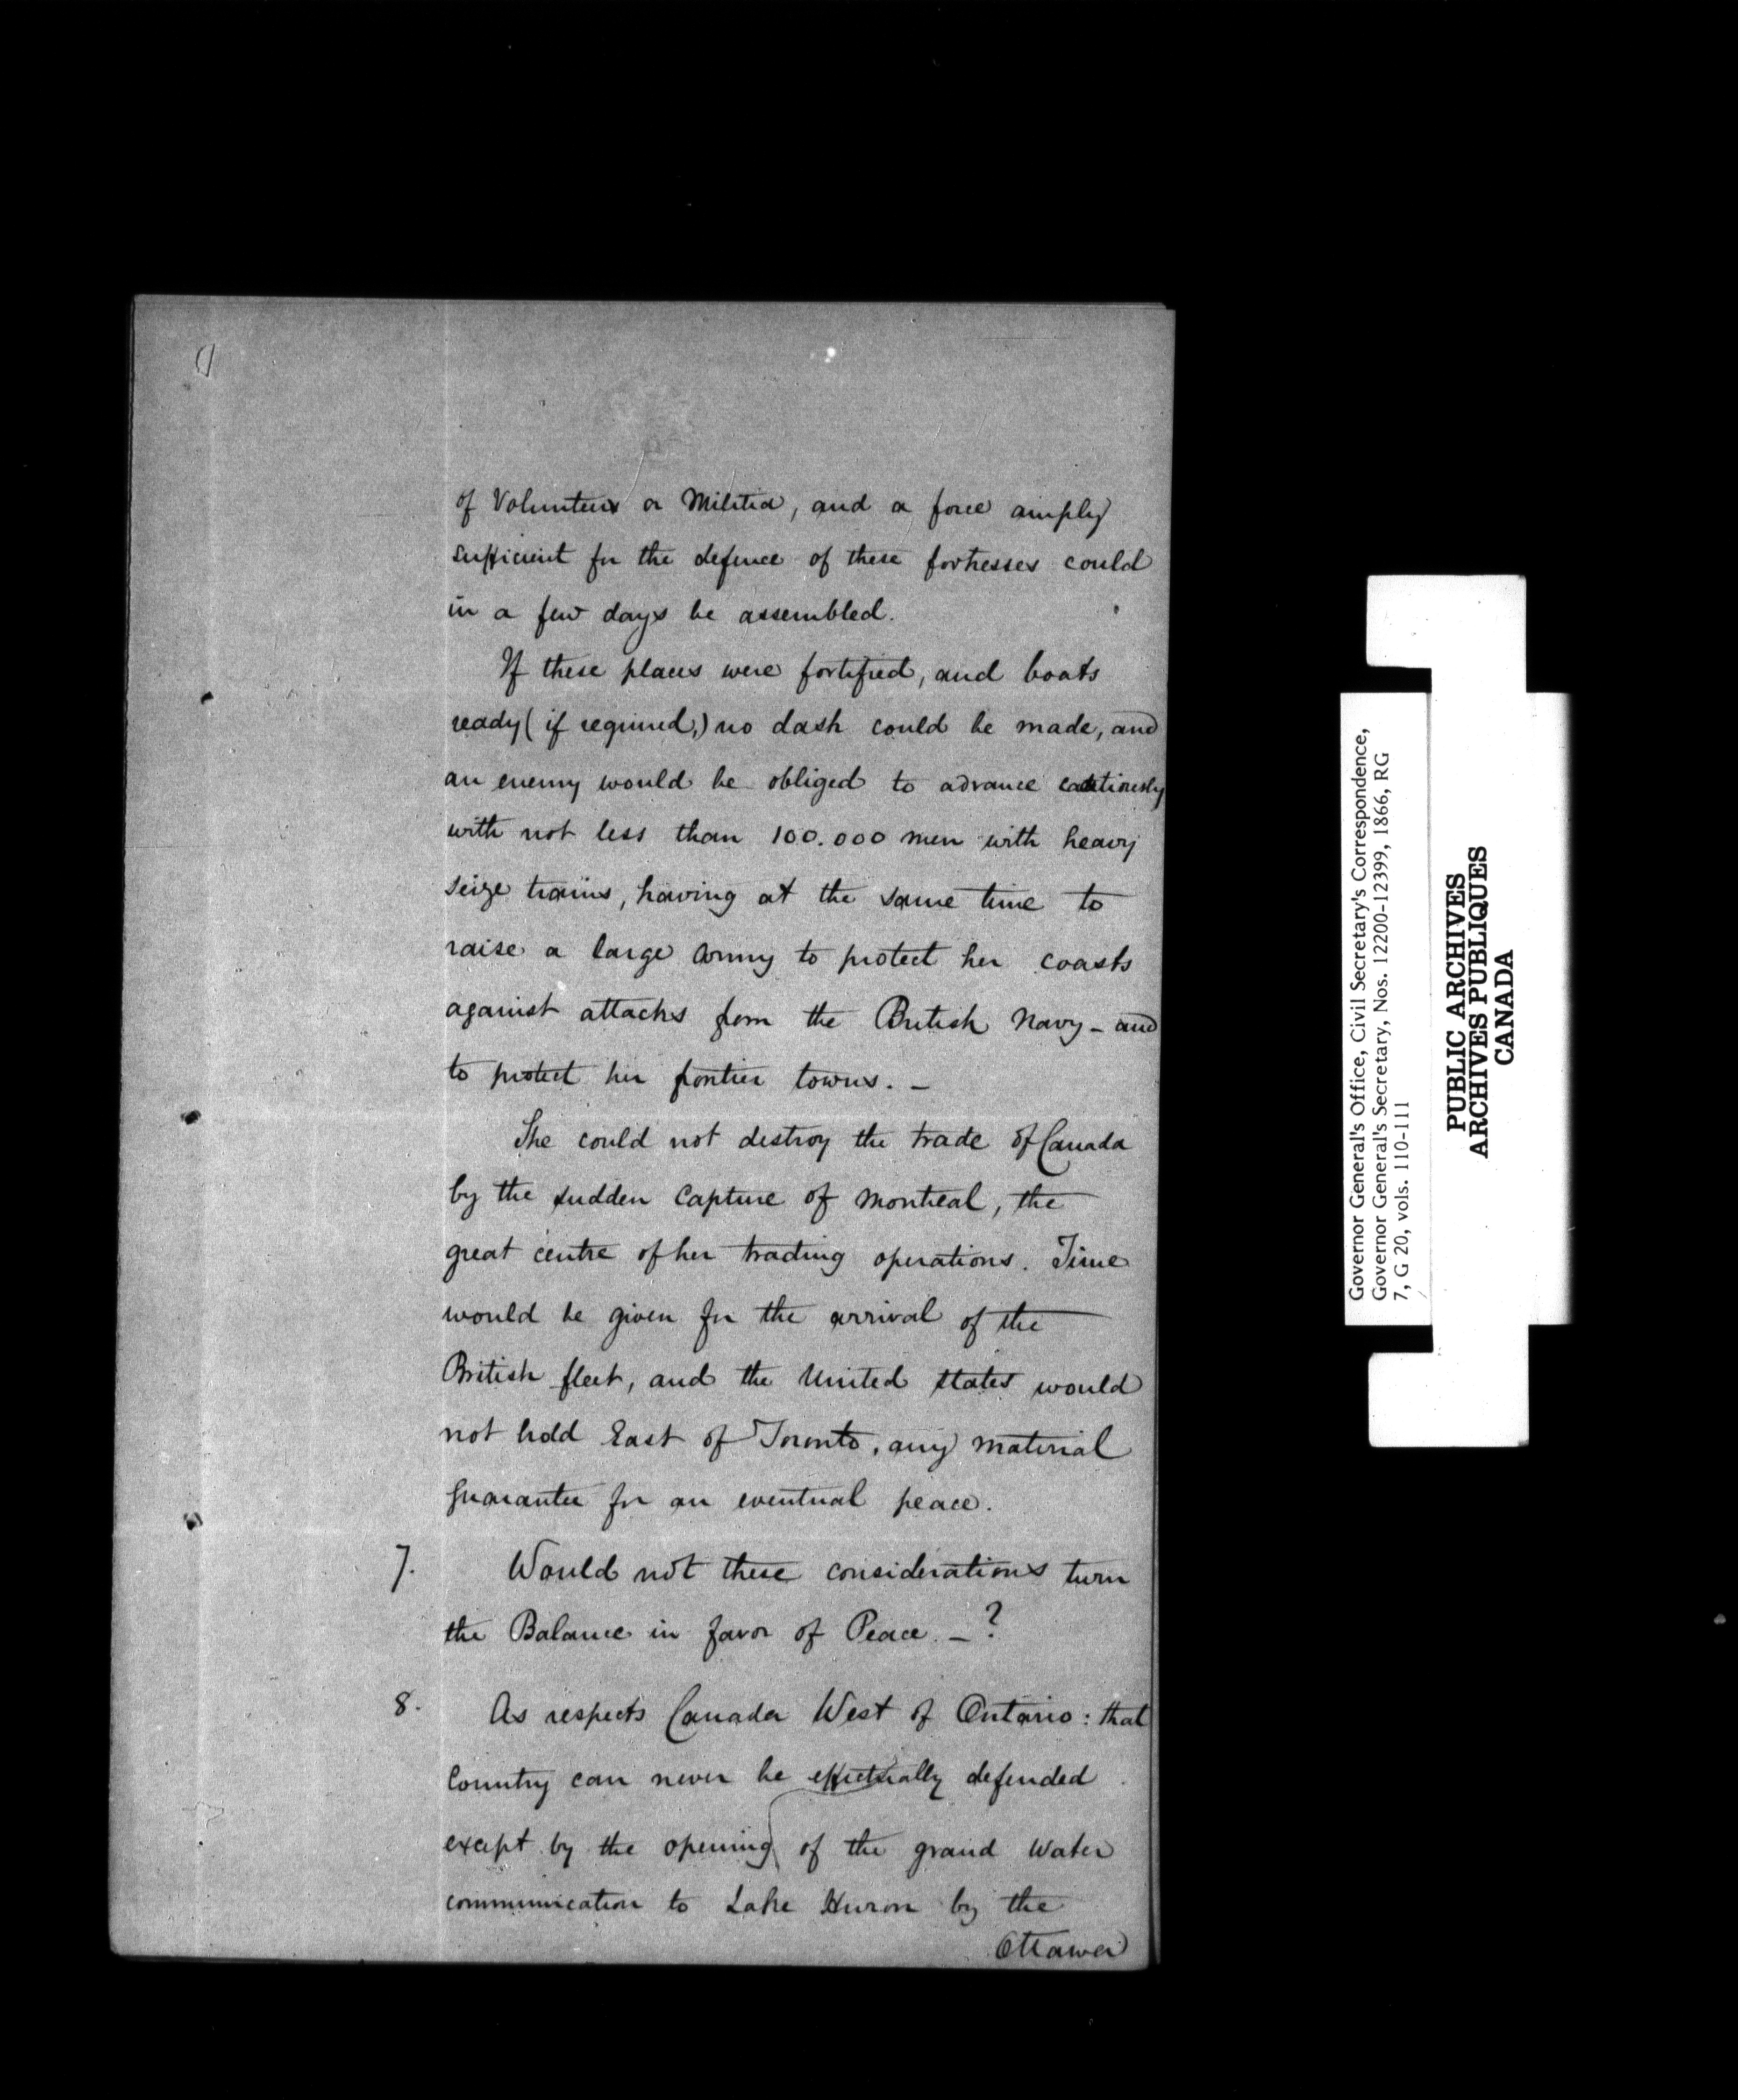 of Volunteers or Militia, and a force amply
sufficient for the defence of these fortresses could
in a few days be assembled.
If these places were fortified, and boats
ready (if required,) no dash could be made, and
an enemy would be obliged to advance cautiously
with not less than 100.000 men with heavy
seize trains, having at the same time to
raise a large army to protect her coasts
against attacks from the British Navy - and
to protect her frontier towns. -
She could not destroy the trade of Canada
by the sudden capture of Montreal, the
great centre of her trading operations. Time
would be given for the arrival of the
British fleet, and the United States would
not hold East of Toronto, any material
guarantee for an eventual peace.
7. Would not these considerations turn
the Balance in favor of Peace. - ?
8. As respects Canada West of Ontario: that
Country can never be effectually defended
except by the opening of the grand Water
communication to Lake Huron by the
Ottawa
Governor General's Office, Civil Secretary's Correspondence,
Governor General's Secretary, Nos. 12200-12399, 1866, RG
7, G 20, vols. 110-111
PUBLIC ARCHIVES
ARCHIVES PUBLIQUES
CANADA